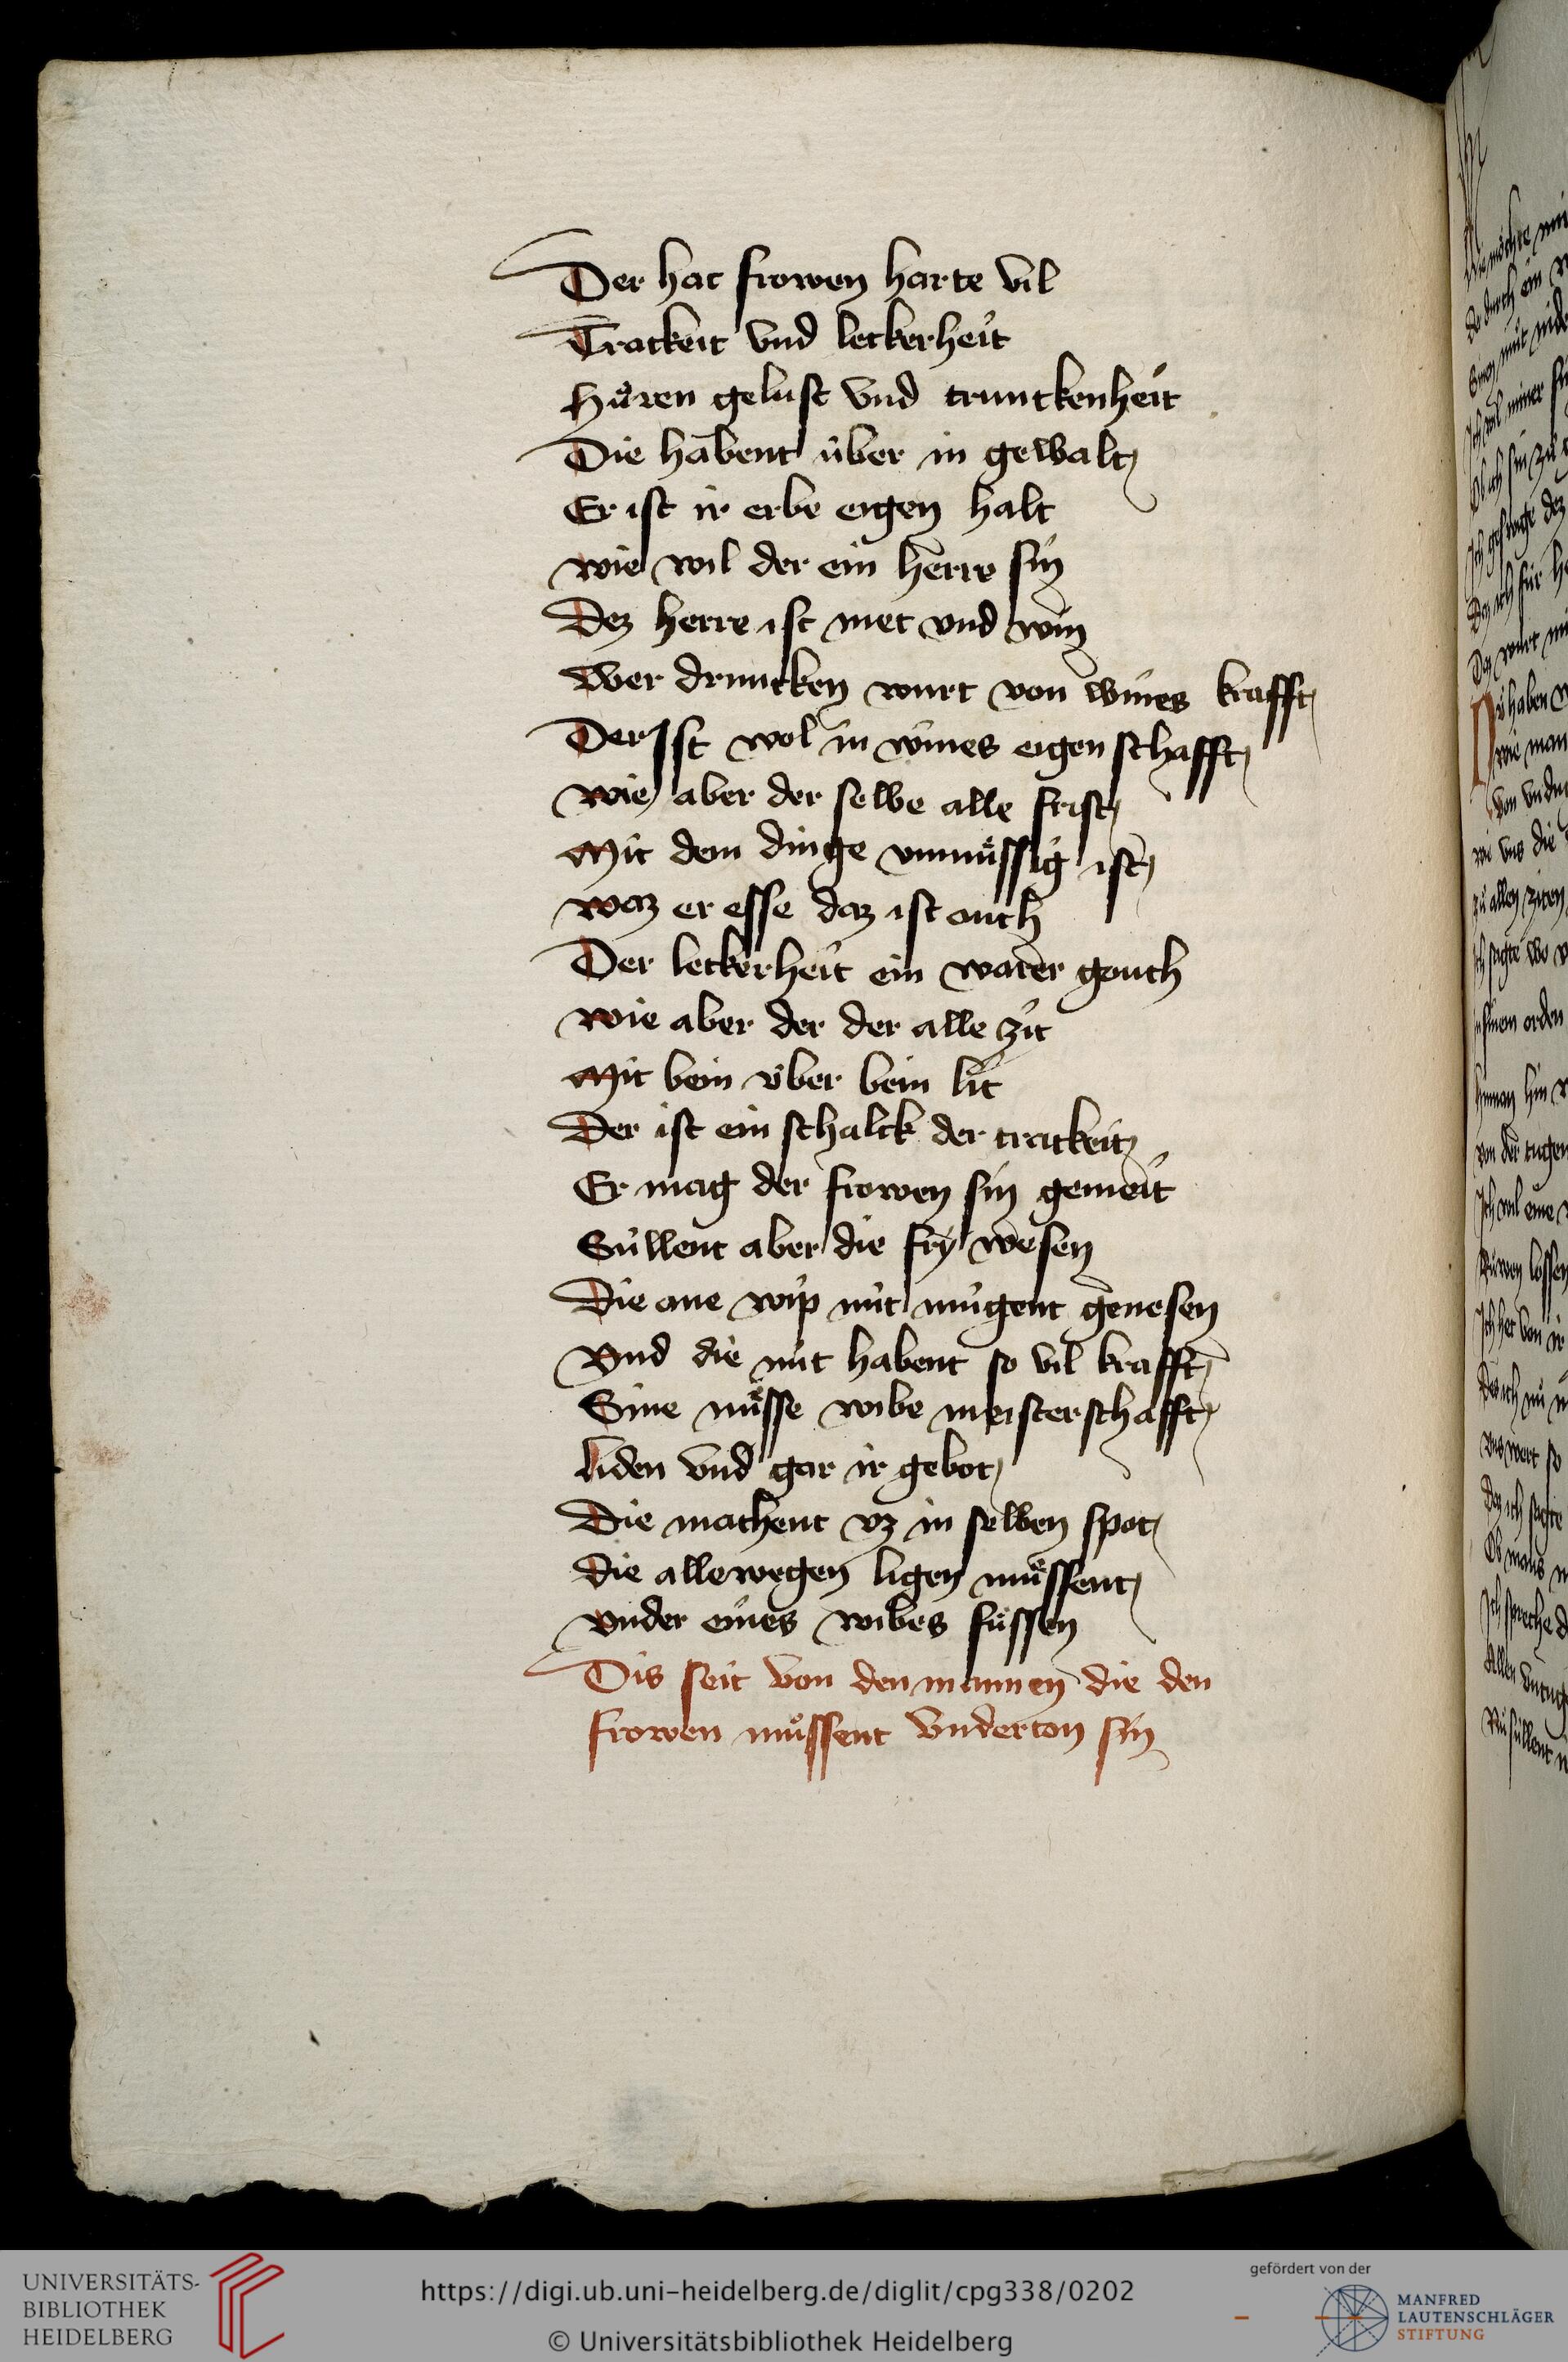 Der hat frowen harte vil
Trackeit vnd leckerheit
Hůren gelust vnd trunckenheit
Die habent über in gewalt
Er ist ir erbe eigen halt
wie wil der ein herre sin
Dez herre ist met vnd win
Wer druncken wurt von wines krafft
Der Ist wol in wines eigenschafft
wie aber der selbe alle frist
Mit dem dinge vnmüssig ist
waz er esse daz ist ouch
Der leckerheit ein warer gouch
wie aber der der alle zit
Mit bein über bein lit
Der ist ein schalck der trackeit
Er mag der frowen sin gemeit
Süllent aber die fry wesen
Die ane wip nüt mügent genesen
Vnd die nüt habent so vil krafft
Sine müsse wibe meisterschafft
liden vnd gar ir gebot
Die machent vz in selben spot
die allewegen ligen müssent
vnder eines wibes füssen
Dis seit von den mannen die den
frowen müssent vnderton sin
UNIVERSITÄTS-
BIBLIOTHEK
HEIDELBERG
https://digi.ub.uni-heidelberg.de/diglit/cpg338/0202
© Universitätsbibliothek Heidelberg
gefördert von der
MANFRED
LAUTENSCHLÄGER
STIFTUNG